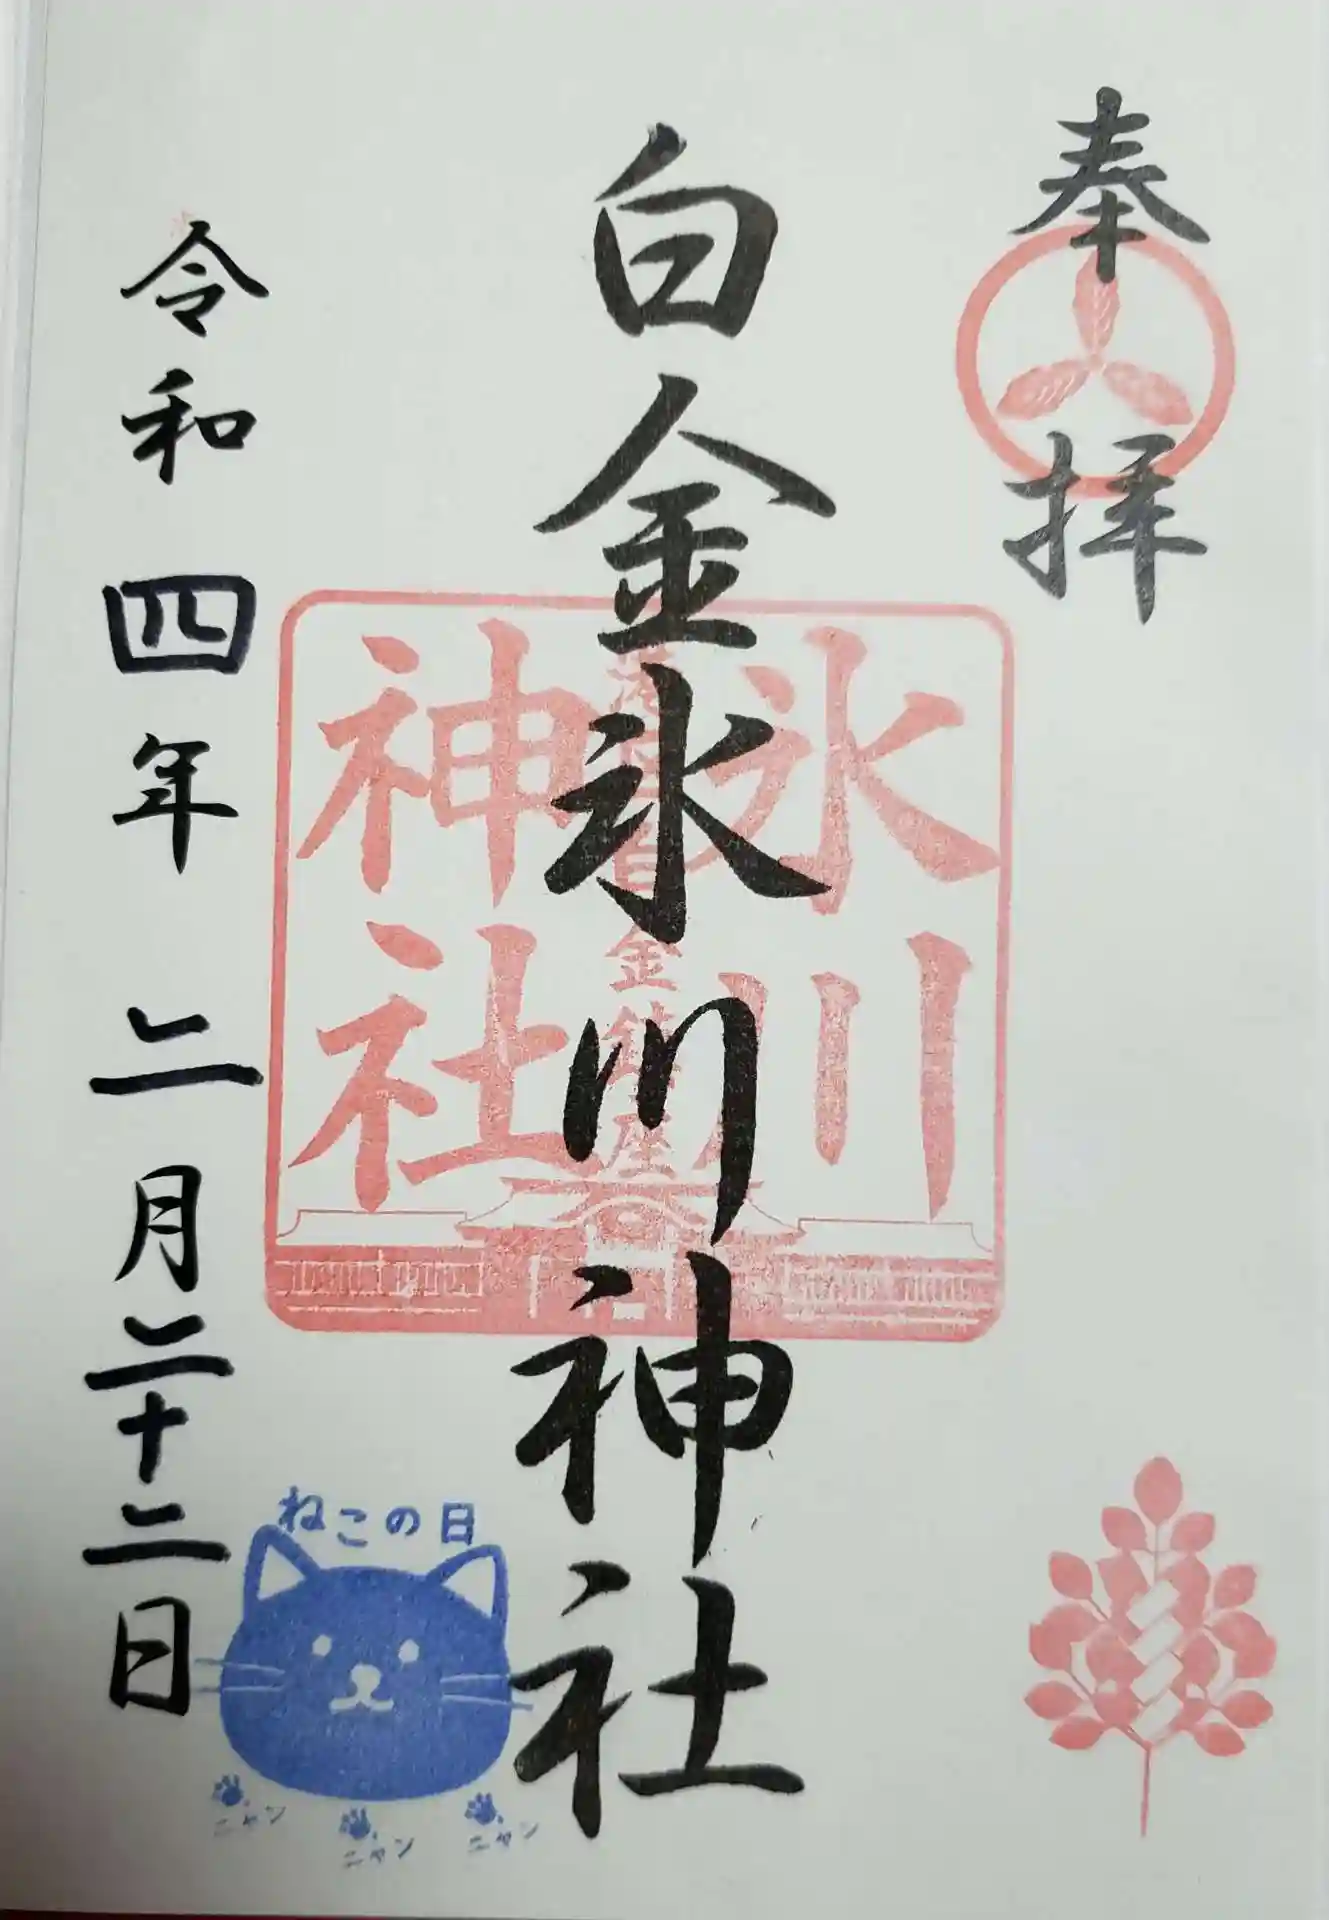 奉拝
白金氷川神社
氷川
神社
金鎮座
令和四年二月二十二日
ねこの日
ニャン
ニャン
ニャン